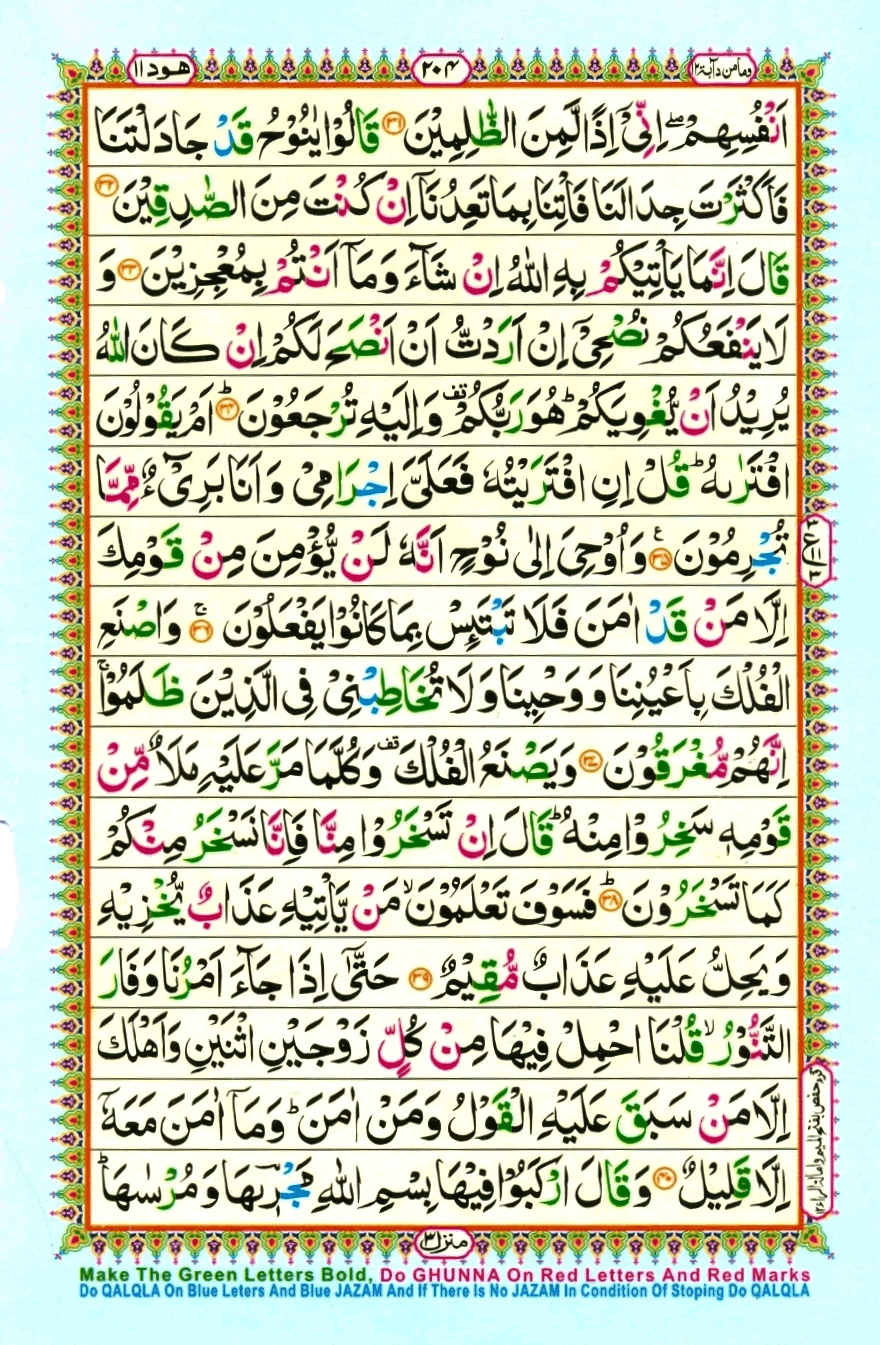 وما من دآبة ١٢
٢٠٤
هود ١١
اَنْفُسِهِمْ ۖۚ اِنِّىْۤ اِذًا لَّمِنَ الظّٰلِمِيْنَ ۝۳۱ قَالُوْا يٰنُوْحُ قَدْ جَادَلْتَنَا
فَاَكْثَرْتَ جِدَالَنَا فَاْتِنَا بِمَا تَعِدُنَاۤ اِنْ كُنْتَ مِنَ الصّٰدِقِيْنَ ۝۳۲
قَالَ اِنَّمَا يَاْتِيْكُمْ بِهِ اللّٰهُ اِنْ شَآءَ وَمَاۤ اَنْتُمْ بِمُعْجِزِيْنَ ۝۳۳ وَ
لَا يَنْفَعُكُمْ نُصْحِىْۤ اِنْ اَرَدْتُّ اَنْ اَنْصَحَ لَكُمْ اِنْ كَانَ اللّٰهُ
يُرِيْدُ اَنْ يُّغْوِيَكُمْ ؕ هُوَ رَبُّكُمْ ۫ وَاِلَيْهِ تُرْجَعُوْنَ ؕ۝۳۴ اَمْ يَقُوْلُوْنَ
افْتَرٰىهُ ؕ قُلْ اِنِ افْتَرَيْتُهٗ فَعَلَىَّ اِجْرَامِىْ وَاَنَا بَرِىْٓءٌ مِّمَّا
تُجْرِمُوْنَ ۝۳۵ع وَاُوْحِىَ اِلٰى نُوْحٍ اَنَّهٗ لَنْ يُّؤْمِنَ مِنْ قَوْمِكَ
اِلَّا مَنْ قَدْ اٰمَنَ فَلَا تَبْتَئِسْ بِمَا كَانُوْا يَفْعَلُوْنَ ۚ۝۳۶ وَاصْنَعِ
الْفُلْكَ بِاَعْيُنِنَا وَوَحْيِنَا وَلَا تُخَاطِبْنِىْ فِى الَّذِيْنَ ظَلَمُوْا ۚ
اِنَّهُمْ مُّغْرَقُوْنَ ۝۳۷ وَيَصْنَعُ الْفُلْكَ ۫ وَكُلَّمَا مَرَّ عَلَيْهِ مَلَاٌ مِّنْ
قَوْمِهٖ سَخِرُوْا مِنْهُ ؕ قَالَ اِنْ تَسْخَرُوْا مِنَّا فَاِنَّا نَسْخَرُ مِنْكُمْ
كَمَا تَسْخَرُوْنَ ؕ۝۳۸ فَسَوْفَ تَعْلَمُوْنَ ۙ مَنْ يَّاْتِيْهِ عَذَابٌ يُّخْزِيْهِ
وَيَحِلُّ عَلَيْهِ عَذَابٌ مُّقِيْمٌ ۝۳۹ حَتّٰىۤ اِذَا جَآءَ اَمْرُنَا وَفَارَ
التَّنُّوْرُ ۙ قُلْنَا احْمِلْ فِيْهَا مِنْ كُلٍّ زَوْجَيْنِ اثْنَيْنِ وَاَهْلَكَ
اِلَّا مَنْ سَبَقَ عَلَيْهِ الْقَوْلُ وَمَنْ اٰمَنَ ؕ وَمَاۤ اٰمَنَ مَعَهٗۤ
اِلَّا قَلِيْلٌ ۝۴۰ وَقَالَ ارْكَبُوْا فِيْهَا بِسْمِ اللّٰهِ مَجْرٖىهَا وَمُرْسٰىهَا ؕ
منزل ٣
Make The Green Letters Bold, Do GHUNNA On Red Letters And Red Marks
Do QALQLA On Blue Leters And Blue JAZAM And If There Is No JAZAM In Condition Of Stoping Do QALQLA